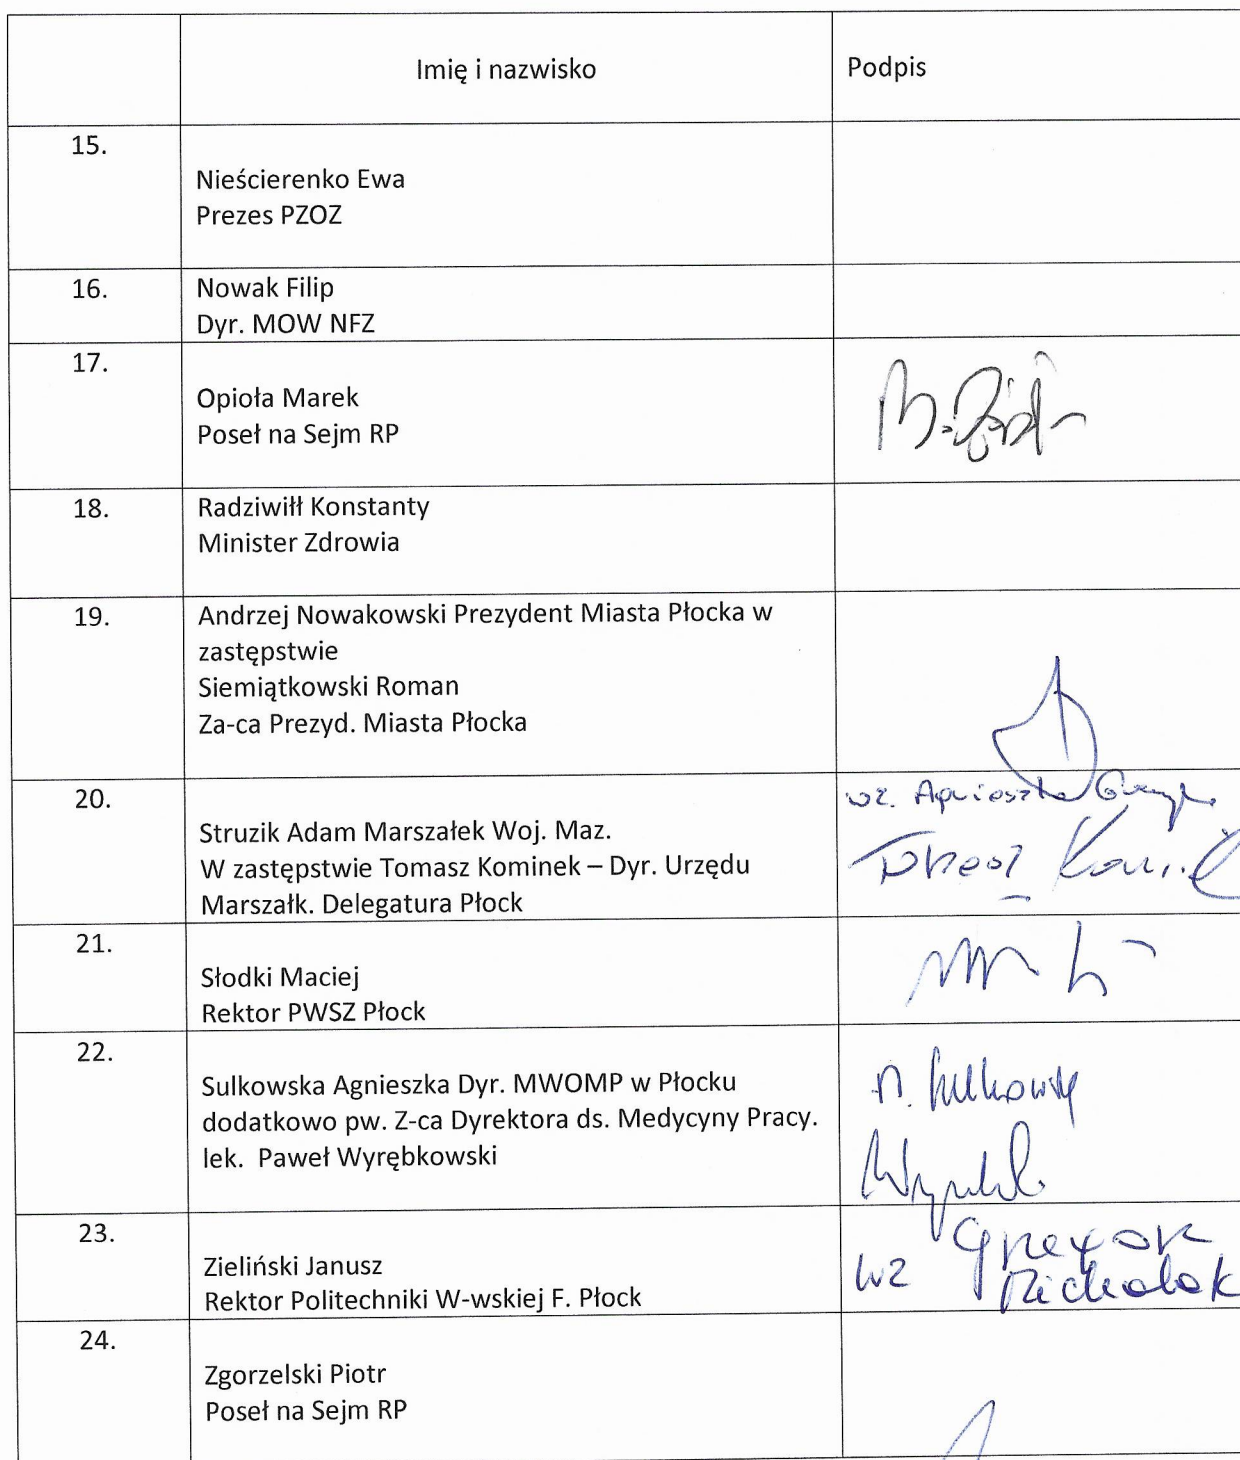 Imię i nazwisko
Podpis
15.
Nieścierenko Ewa
Prezes PZOZ
16.
Nowak Filip
Dyr. MOW NFZ
17.
Opioła Marek
Poseł na Sejm RP
18.
Radziwiłł Konstanty
Minister Zdrowia
19.
Andrzej Nowakowski Prezydent Miasta Płocka w
zastępstwie
Siemiątkowski Roman
Za-ca Prezyd. Miasta Płocka
20.
Struzik Adam Marszałek Woj. Maz.
W zastępstwie Tomasz Kominek – Dyr. Urzędu
Marszałk. Delegatura Płock
wz. Agnieszka
21.
Słodki Maciej
Rektor PWSZ Płock
22.
Sulkowska Agnieszka Dyr. MWOMP w Płocku
dodatkowo pw. Z-ca Dyrektora ds. Medycyny Pracy.
lek. Paweł Wyrębkowski
23.
Zieliński Janusz
Rektor Politechniki W-wskiej F. Płock
wz
24.
Zgorzelski Piotr
Poseł na Sejm RP